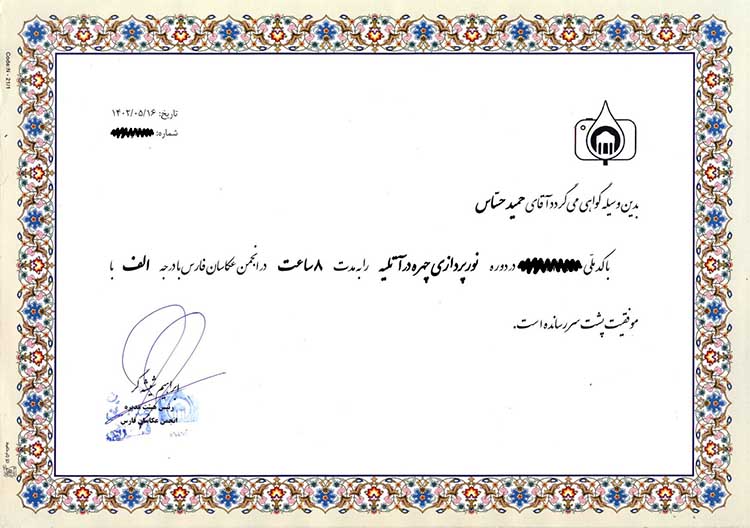 Code:N - 21/1
تاریخ: ۱۴۰۲/۰۵/۱۶
شماره:
بدین وسیله گواهی می گردد آقای حمید حسّاس
با کد ملّی در دوره نورپردازی چهره در آتلیه را به مدت ۸ ساعت در انجمن عکاسان فارس با درجه الف با
موفقیت پشت سر رسانده است.
ابراهیم شیشه گر
رئیس هیئت مدیره
انجمن عکاسان فارس